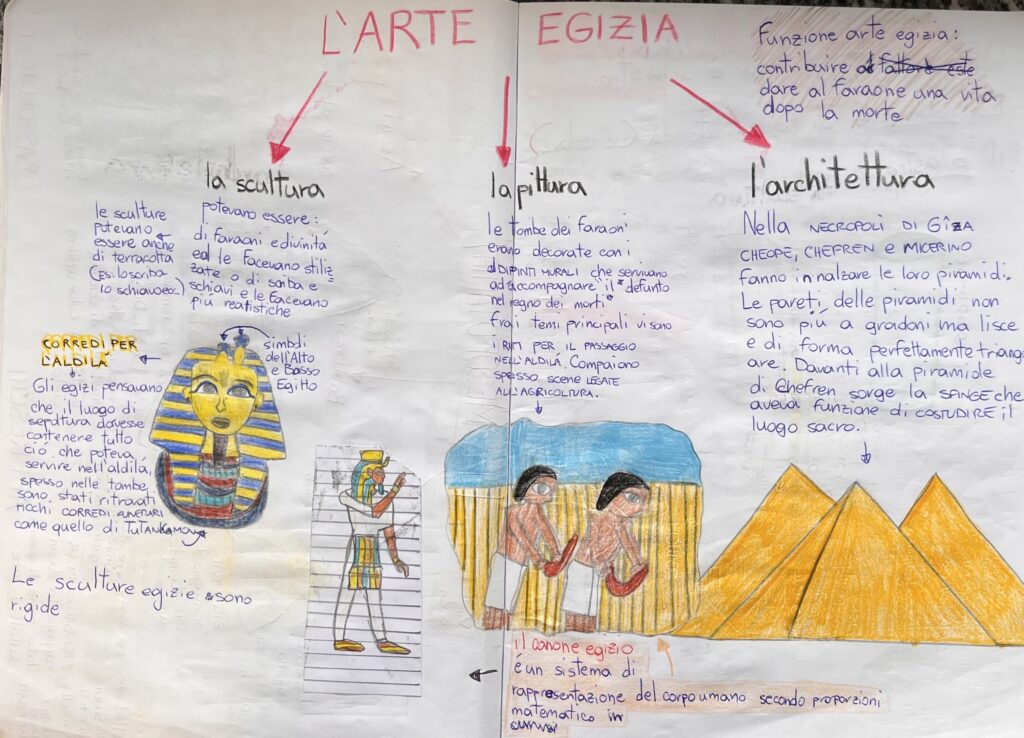 L'ARTE EGIZIA
Funzione arte egizia:
contribuire a
dare al faraone una vita
dopo la morte
la scultura
le sculture
potevano
essere anche
di terracotta
(Es. lo scriba
lo schiavo ecc.)
potevano essere:
di faraoni e divinità
ed le facevano stiliz
zate o di scriba e
schiavi e le facevano
più realistiche
CORREDI PER
L'ALDILÁ
simboli
dell'Alto
e Basso
Egitto
Gli egizi pensavano
che il luogo di
sepoltura dovesse
contenere tutto
ciò che poteva
servire nell'aldilá,
spesso nelle tombe
sono stati ritrovati
ricchi CORREDI FUNERARI
come quello di TUTANKAMON
Le sculture egizie sono
rigide
la pittura
le tombe dei faraoni
erano decorate con i
DIPINTI MURALI che servivano
ad accompagnare il "defunto
nel regno dei morti"
fra i temi principali vi sono
i RITI PER IL PASSAGGIO
NELL'ALDILÁ. Compaiono
spesso SCENE LEGATE
ALL'AGRICOLTURA.
il canone egizio
é un sistema di
rappresentazione del corpo umano secondo proporzioni
matematico in
l'architettura
Nella NECROPOLI DI GÎZA
CHEOPE, CHEFREN e MICERINO
fanno innalzare le loro piramidi.
Le pareti delle piramidi non
sono più a gradoni ma lisce
e di forma perfettamente triango
are. Davanti alla piramide
di Chefren sorge la SFINGE che
aveva funzione di costudire il
luogo sacro.